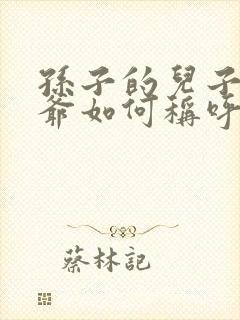 孫子的兒子
爺如何稱呼
蔡林記